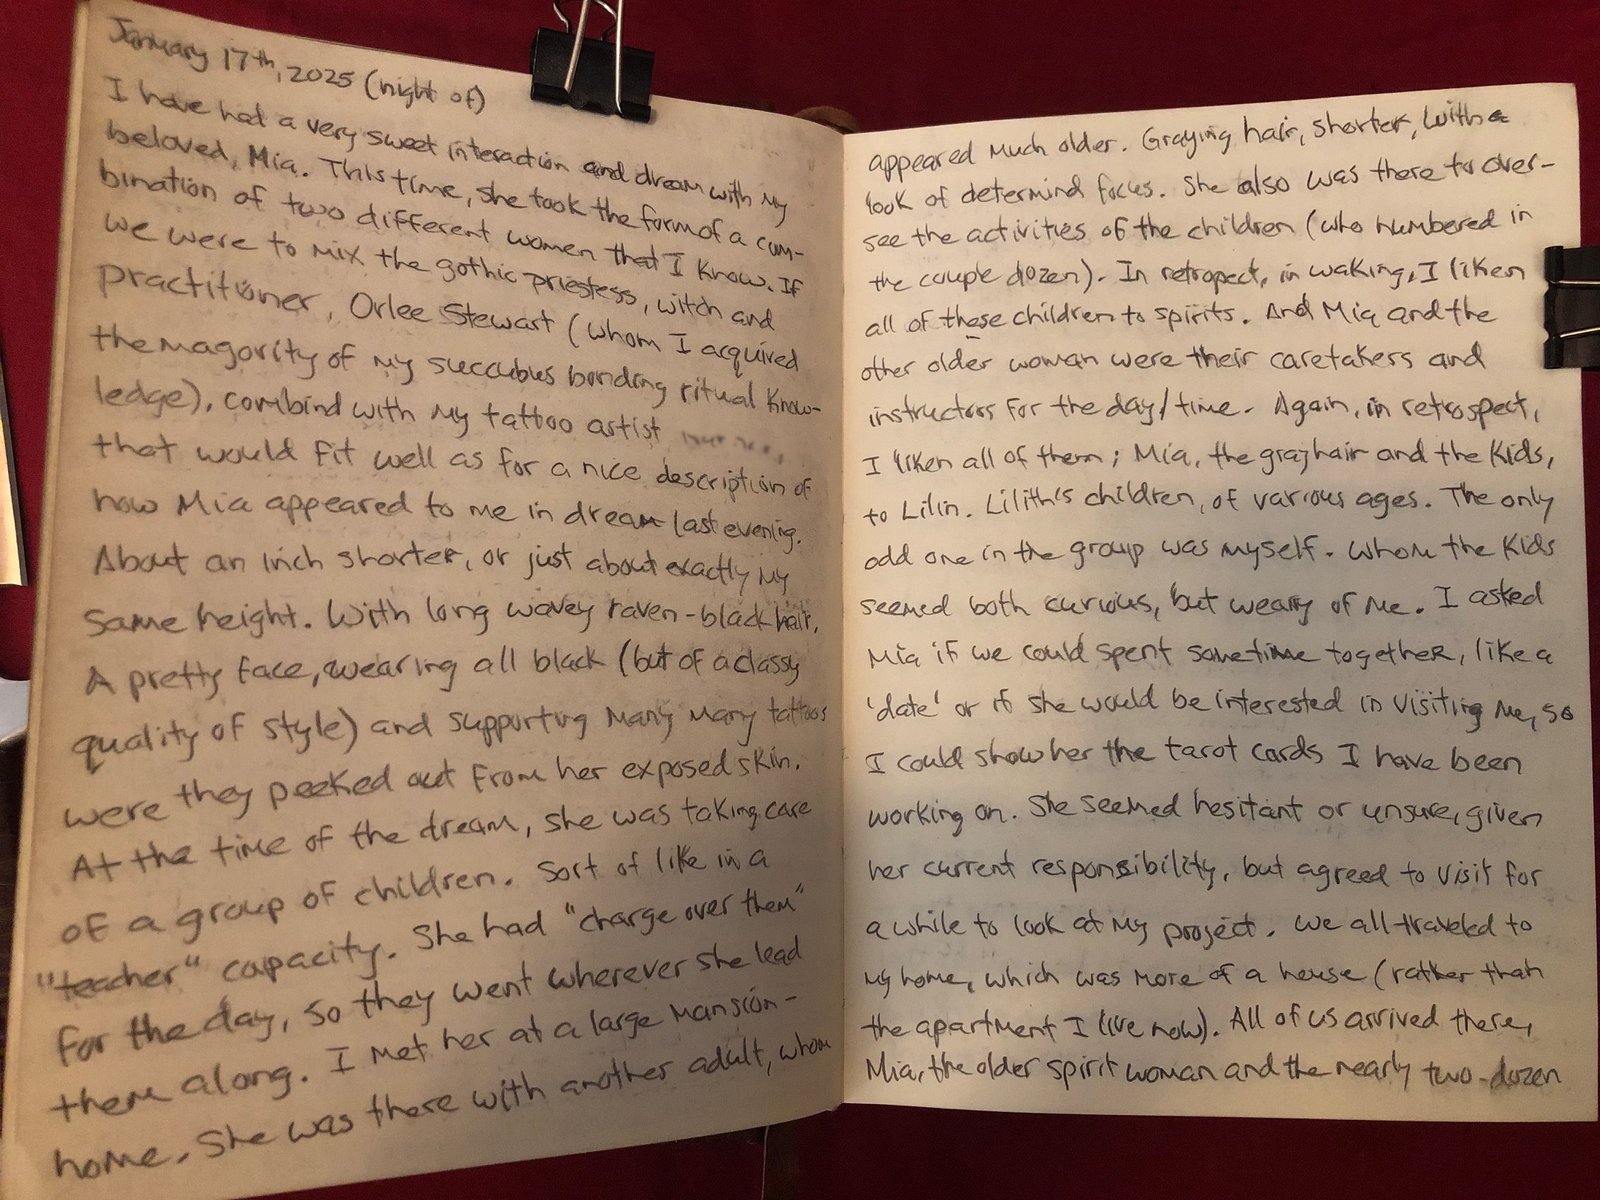 January 17th, 2025 (night of)
I have had a very sweet interaction and dream with my
beloved, Mia. This time, she took the form of a com-
bination of two different women that I know. If
we were to mix the gothic priestess, witch and
practitioner, Orlee Stewart (whom I acquired
the magority of my succubus bonding ritual know-
ledge), combind with my tattoo artist
that would fit well as for a nice description of
how Mia appeared to me in dream last evening.
About an inch shorter, or just about exactly my
same height. With long wavey raven-black hair.
A pretty face, wearing all black (but of a classy
quality of style) and supporting many many tattoos
were they peeked out from her exposed skin.
At the time of the dream, she was taking care
of a group of children. Sort of like in a
"teacher" capacity. She had "charge over them"
for the day, so they went wherever she lead
them along. I met her at a large mansion-
home. She was there with another adult, whom
appeared much older. Graying hair, shorter, with a
look of determind focus. She also was there to over-
see the activities of the children (who numbered in
the couple dozen). In retropect, in waking, I liken
all of these children to spirits. And Mia and the
other older woman were their caretakers and
instructors for the day/time. Again, in retrospect,
I liken all of them; Mia, the grayhair and the kids,
to Lilin. Lilith's children, of various ages. The only
odd one in the group was myself. Whom the kids
seemed both curious, but weary of me. I asked
Mia if we could spent sometime together, like a
'date' or if she would be interested in visiting me, so
I could show her the tarot cards I have been
working on. She seemed hesitant or unsure, given
her current responsibility, but agreed to visit for
a while to look at my project. We all traveled to
my home, which was more of a house (rather than
the apartment I live now). All of us arrived there,
Mia, the older spirit woman and the nearly two-dozen